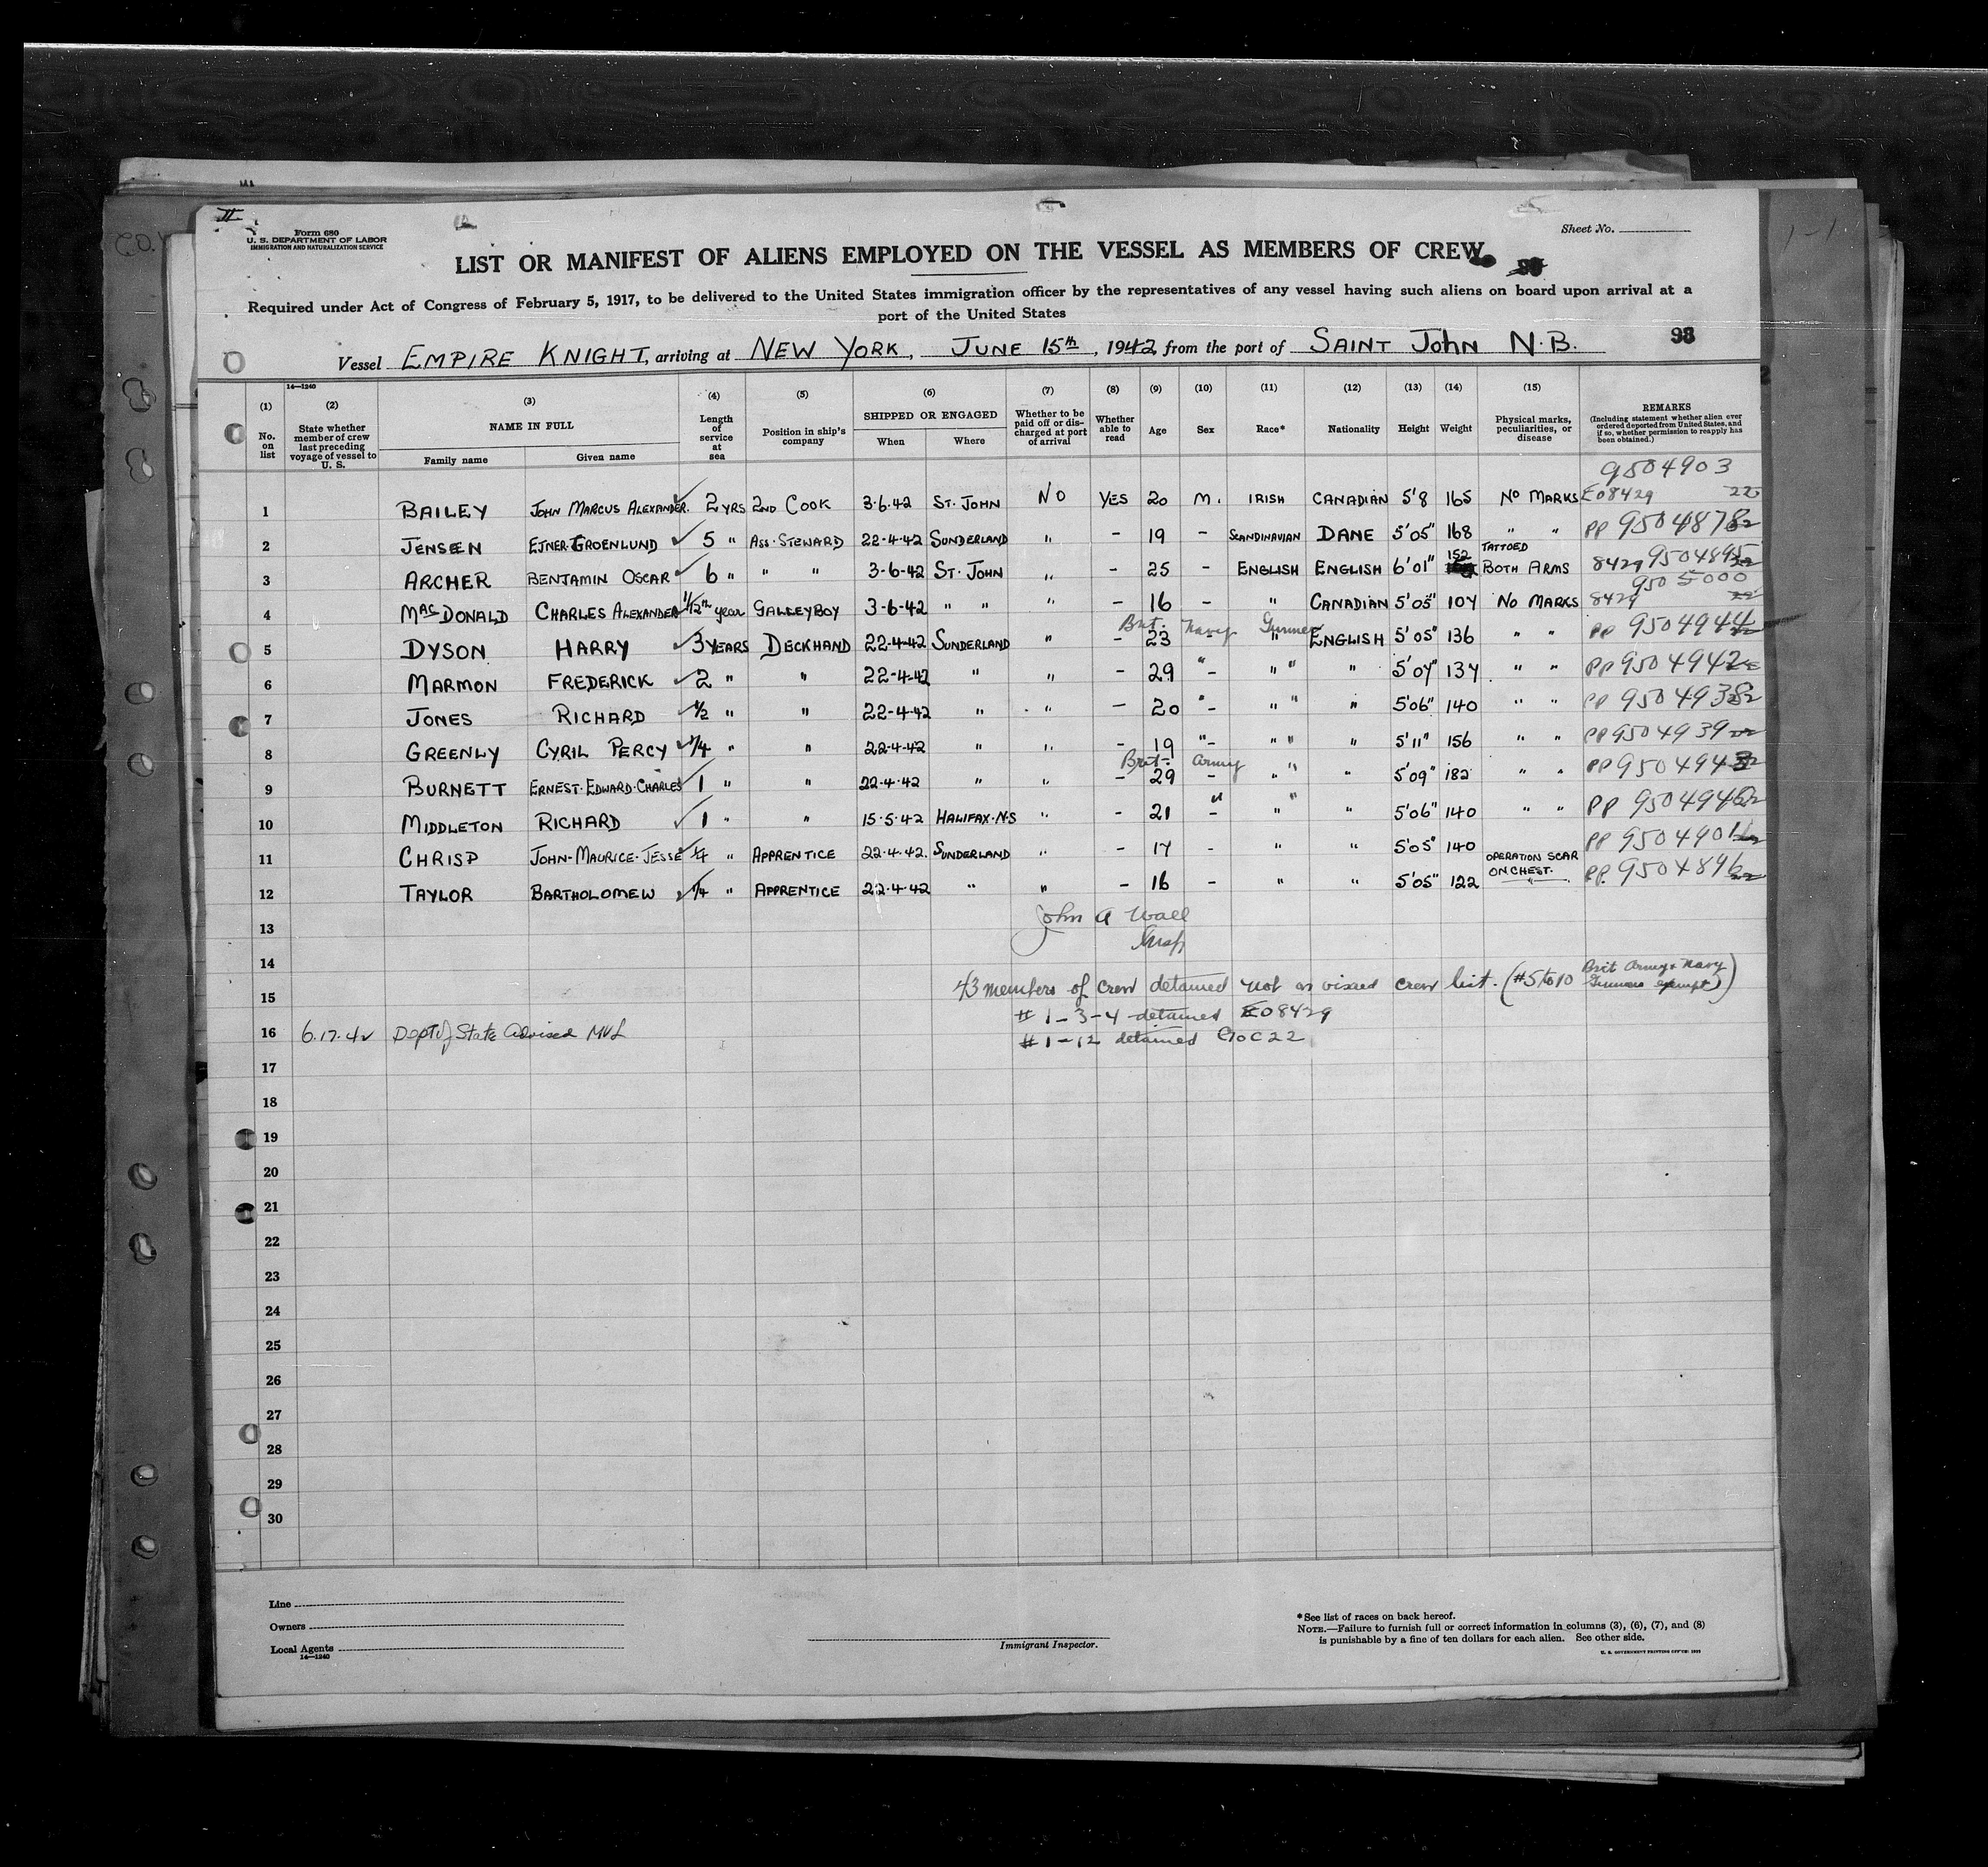 II
Form 680
U. S. DEPARTMENT OF LABOR
IMMIGRATION AND NATURALIZATION SERVICE
Sheet No.
LIST OR MANIFEST OF ALIENS EMPLOYED ON THE VESSEL AS MEMBERS OF CREW
Required under Act of Congress of February 5, 1917, to be delivered to the United States immigration officer by the representatives of any vessel having such aliens on board upon arrival at a
port of the United States
Vessel EMPIRE KNIGHT, arriving at NEW YORK, JUNE 15th, 1942, from the port of SAINT JOHN N.B.
93
14—1240
(1) No. on list
(2) State whether member of crew last preceding voyage of vessel to U. S.
(3) NAME IN FULL Family name Given name
(4) Length of service at sea
(5) Position in ship's company
(6) SHIPPED OR ENGAGED When Where
(7) Whether to be paid off or discharged at port of arrival
(8) Whether able to read
(9) Age
(10) Sex
(11) Race*
(12) Nationality
(13) Height
(14) Weight
(15) Physical marks, peculiarities, or disease
REMARKS (Including statement whether alien ever ordered deported from United States, and if so, whether permission to reapply has been obtained.)
9504903
1 BAILEY JOHN MARCUS ALEXANDER. 2 YRS 2ND COOK 3.6.42 ST. JOHN NO YES 20 M. IRISH CANADIAN 5'8 165 NO MARKS E08429 22
2 JENSEN EJNER-GROENLUND 5 " ASS. STEWARD 22-4-42 SUNDERLAND " - 19 - SCANDINAVIAN DANE 5'05" 168 " " PP 9504878
3 ARCHER BENJAMIN OSCAR 6 " " " 3-6-42 ST. JOHN " - 25 - ENGLISH ENGLISH 6'01" 152 TATTOED BOTH ARMS 8429 9504895
9505000
4 MACDONALD CHARLES ALEXANDER 1/12th year GALLEYBOY 3-6-42 " " " - 16 - " CANADIAN 5'05" 107 NO MARKS 8429
Brit. Navy Gunner
5 DYSON HARRY 3 YEARS DECKHAND 22-4-42 SUNDERLAND " - 23 - " ENGLISH 5'05" 136 " " PP 9504944
6 MARMON FREDERICK 2 " " 22-4-42 " " - 29 " - " " " 5'07" 137 " " PP 9504942
7 JONES RICHARD 1/2 " " 22-4-42 " " - 20 " - " " " 5'06" 140 " " PP 9504938
8 GREENLY CYRIL PERCY 1/4 " " 22-4-42 " " - 19 " - " " " 5'11" 156 " " PP 9504939
Brit. Army
9 BURNETT ERNEST. EDWARD. CHARLES 1 " " 22-4-42 " " - 29 - " " " 5'09" 182 " " PP 9504943
10 MIDDLETON RICHARD 1 " " 15.5.42 HALIFAX. N.S " - 21 " - " " " 5'06" 140 " " PP 950494
11 CHRISP JOHN-MAURICE-JESSE 1/4 " APPRENTICE 22-4-42. SUNDERLAND " - 17 - " " 5'05" 140 PP 9504901
12 TAYLOR BARTHOLOMEW 1/4 " APPRENTICE 22-4-42 " " - 16 - " " 5'05" 122 OPERATION SCAR ON CHEST. PP. 9504896
13 John A Wall
Insp
14
15 43 members of crew detained not on visaed crew list. (#5 to 10 Brit Army & Navy Gunners exempt)
# 1-3-4 detained E08429
16 6.17.42 Dept of State Advised MVL
# 1-12 detained GOC22
17
18
19
20
21
22
23
24
25
26
27
28
29
30
Line
Owners
Local Agents
14—1240
Immigrant Inspector.
*See list of races on back hereof.
NOTE.—Failure to furnish full or correct information in columns (3), (6), (7), and (8)
is punishable by a fine of ten dollars for each alien. See other side.